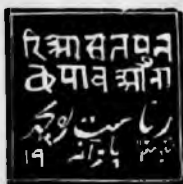 रिआसतपुन
छपावआँना
ریاست پونچھ
پاو آنہ